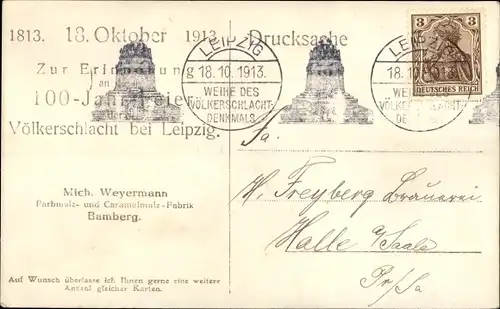 1813. 18. Oktober 1913. Drucksache
Zur Erinnerung
an die
100-Jahrfeier
der
Völkerschlacht bei Leipzig.
LEIPZIG
18.10.1913.
WEIHE DES
VÖLKERSCHLACHT-
DENKMALS
LEIPZIG
18.10.1913.
WEIHE DES
VÖLKERSCHLACHT-
DENKMALS
3 3
DEUTSCHES REICH
Mich. Weyermann
Farbmalz- und Caramelmalz-Fabrik
Bamberg.
Auf Wunsch überlasse ich Ihnen gerne eine weitere
Anzahl gleicher Karten.
Fa.
Freyberg Brauerei
Halle a/Saale
Pr/Sa